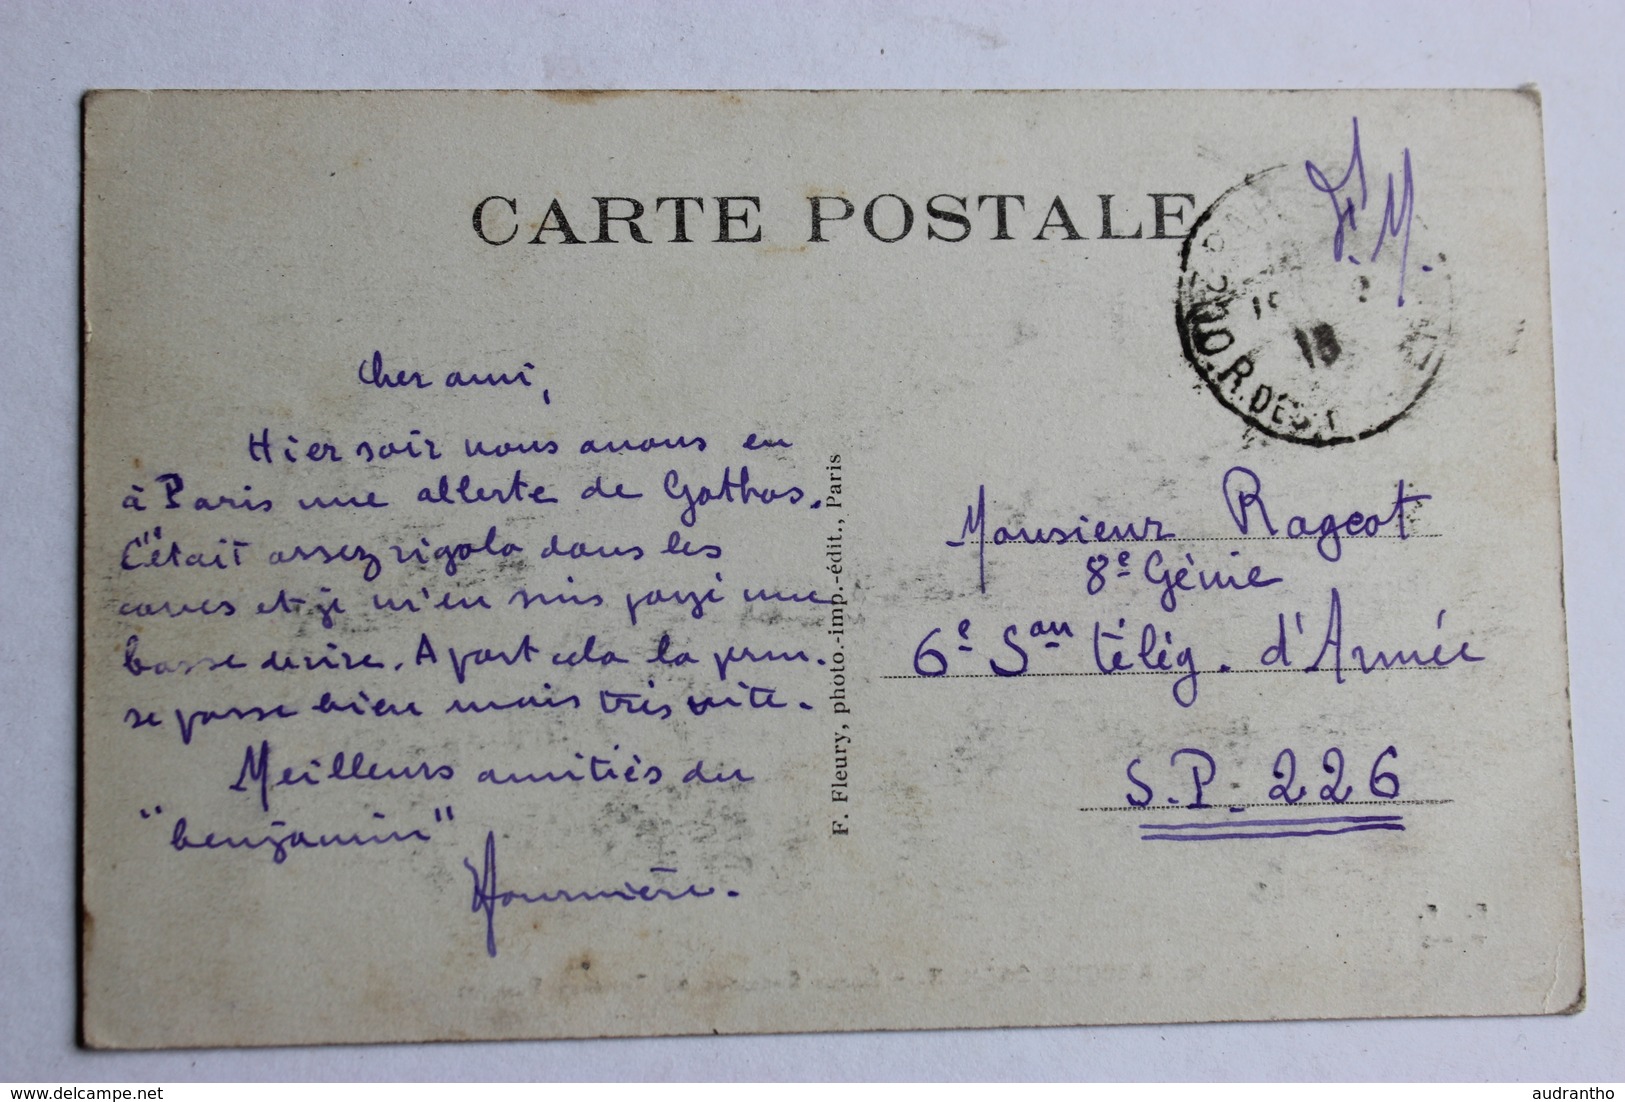 CARTE POSTALE
F.M.
18
R. DES
Cher ami,
Hier soir nous avons eu
à Paris une allerte de Gothas.
C'était assez rigolo dans les
caves et je m'en suis payé une
bosse de rire. A part cela la perm.
se passe bien mais très vite.
Meilleurs amitiés du
"benjamin"
F. Fleury, photo.-imp.-édit., Paris
Monsieur Rageot
8e Génie
6e Son télég. d'Armée
S.P. 226
audrantho